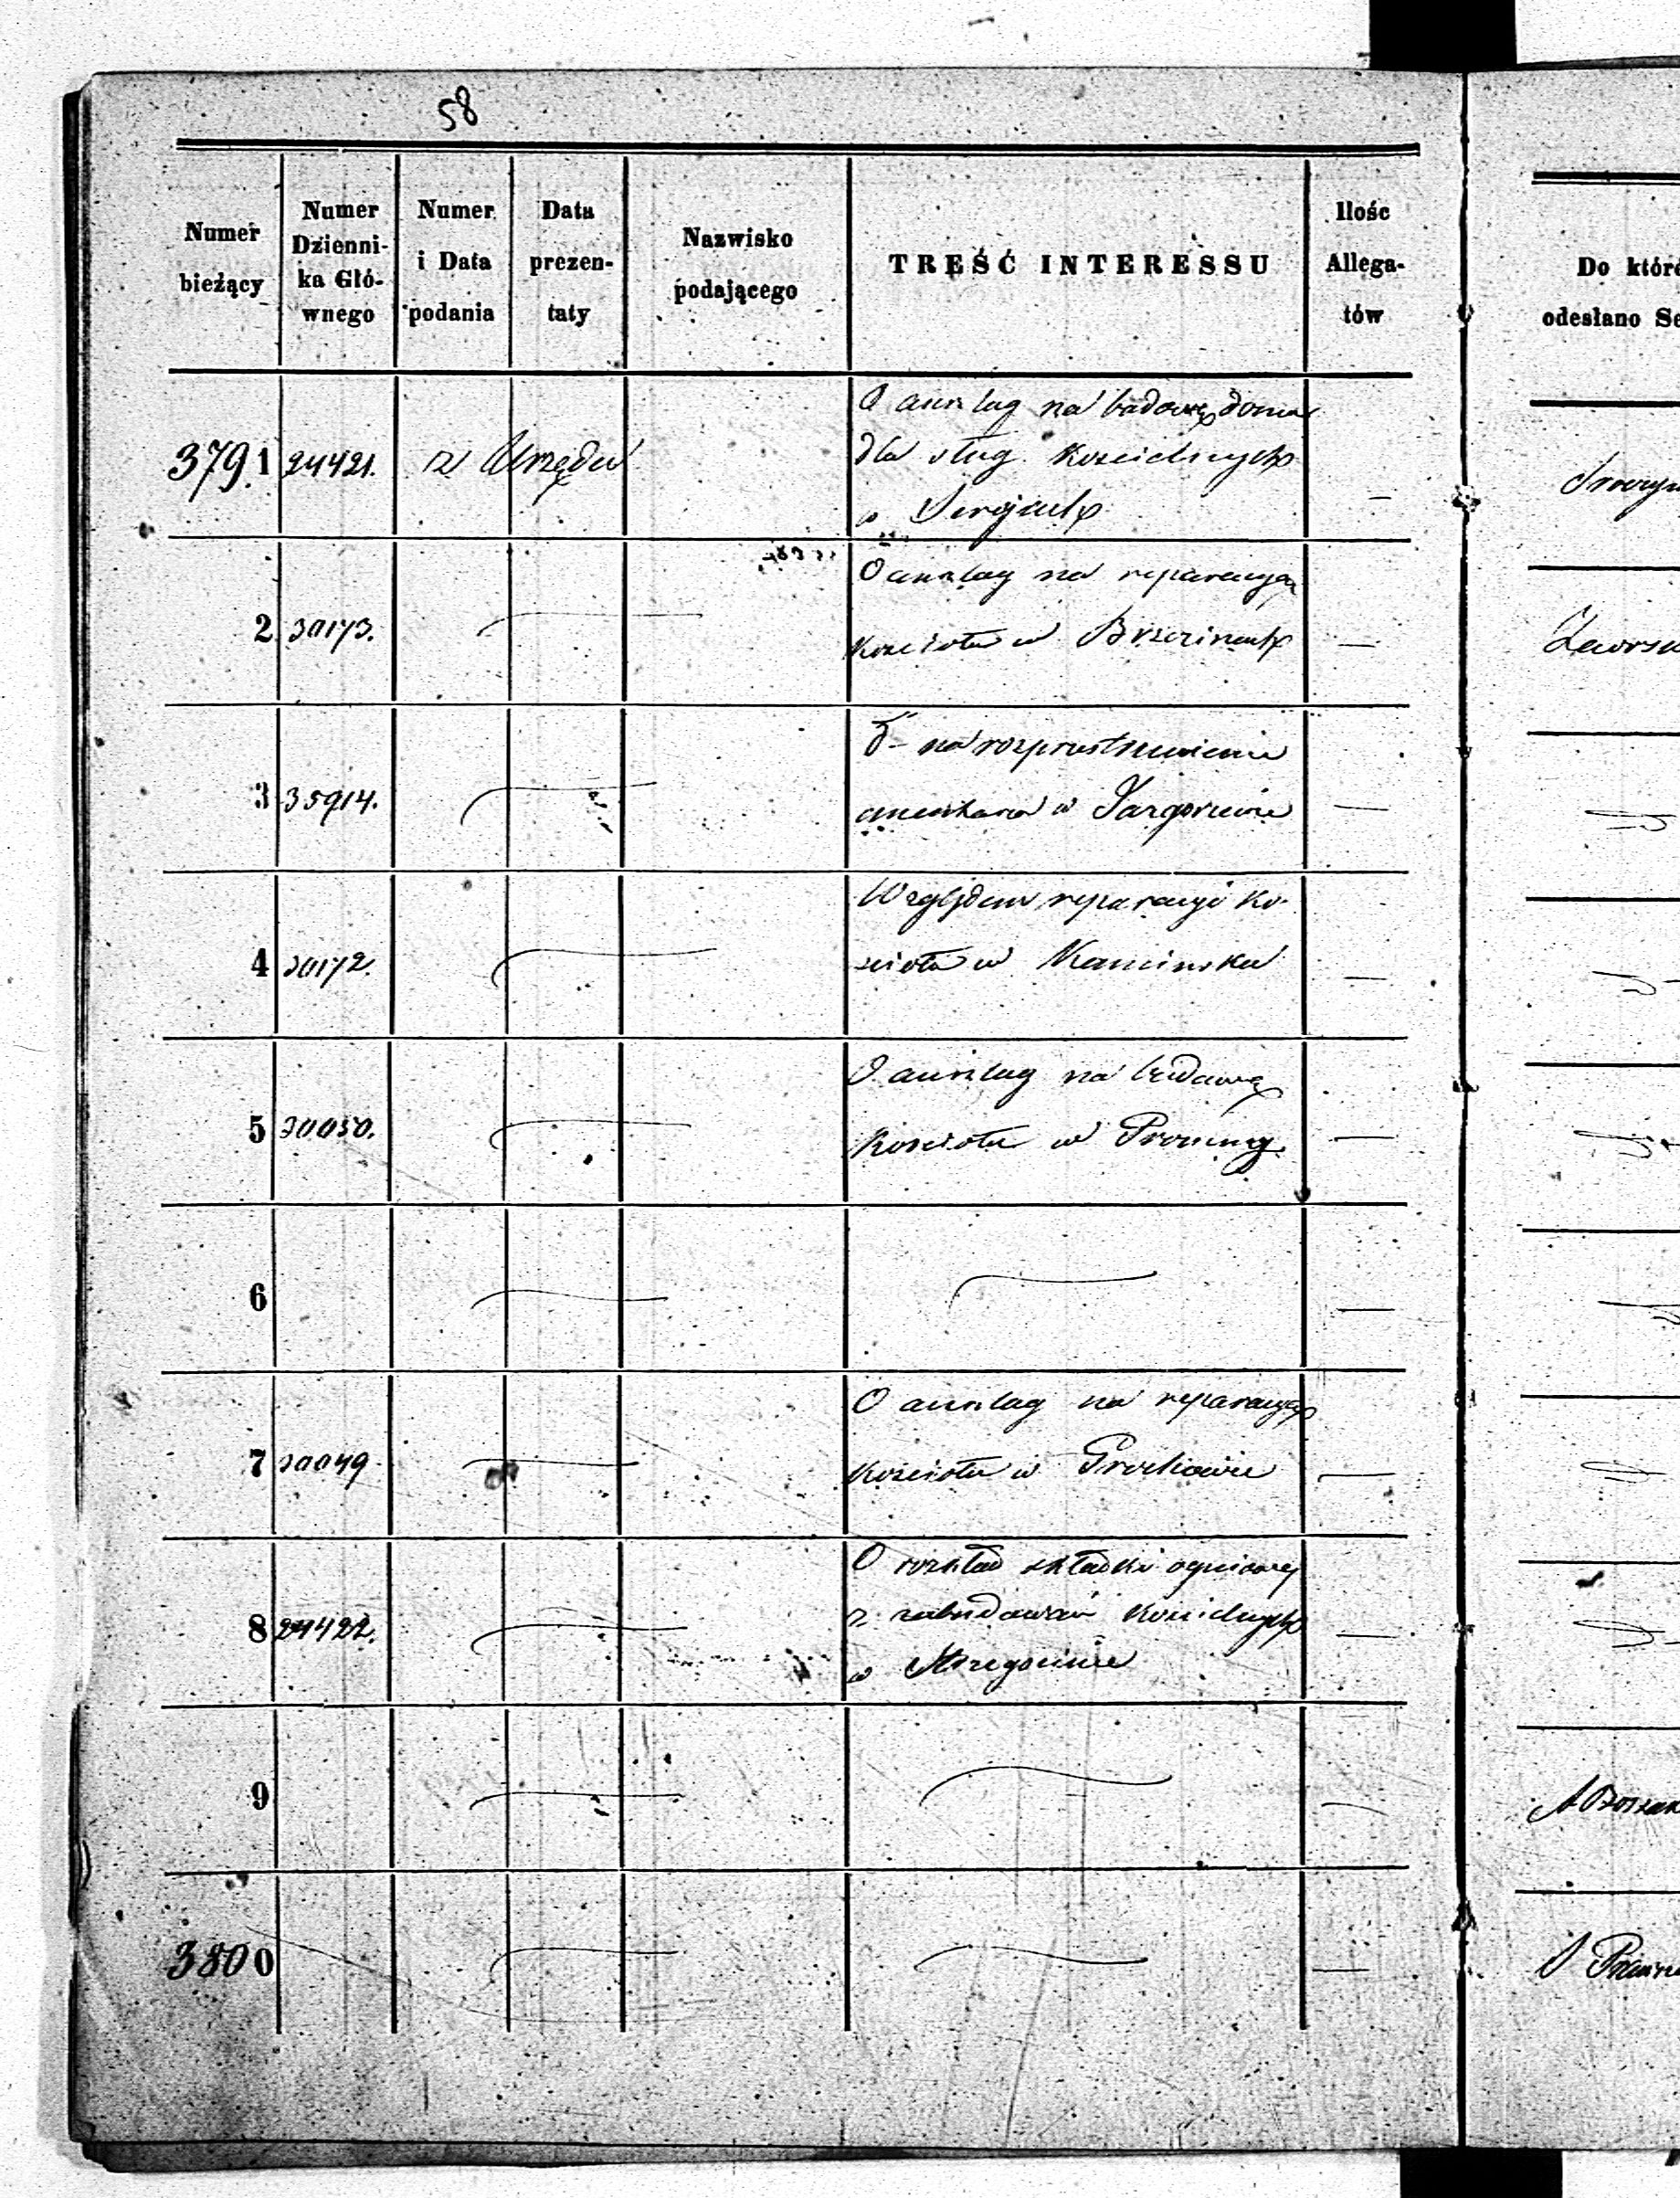 58
Numer bieżący
Numer Dzienni-
ka Głó-
wnego
Numer
i Data
podania
Data
prezen-
taty
Nazwisko
podającego
TREŚĆ INTERESSU
Ilośc
Allega-
tów
Do któré
odesłano Se
3791 24421. z Urzędu O anszlag na budowę domu
dla sług Kościelnych
w —
2 30173. O anszlag na reparacyą
Kościoła w Brzezinach —
3 35914. dº na rozprzestrzenienie
cmentarza w —
4 30172. Względem reparacyi Ko-
ścioła w Kamińsku —
5 30050. O anszlag na budowę
Kościoła w —
6 —
7 30049 O anszlag na reparacyą
Kościoła w —
8 24422. O rozkład składki ogniowej
z zabudowań Kościelnych
w —
9 —
3800 —